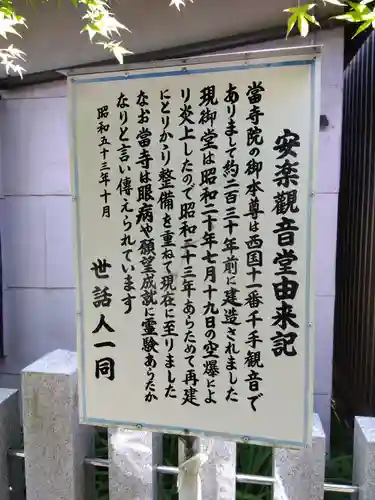 安楽観音堂由来記
當寺院の御本尊は西国十一番千手観音で
ありまして約二百三十年前に建造されました
現御堂は昭和二十年七月十九日の空爆によ
り炎上したので昭和二十三年あらためて再建
にとりかゝり整備を重ねて現在に至りました
なお當寺は眼病や願望成就に霊験あらたか
なりと言い傳えられています
昭和五十三年十月
世話人一同